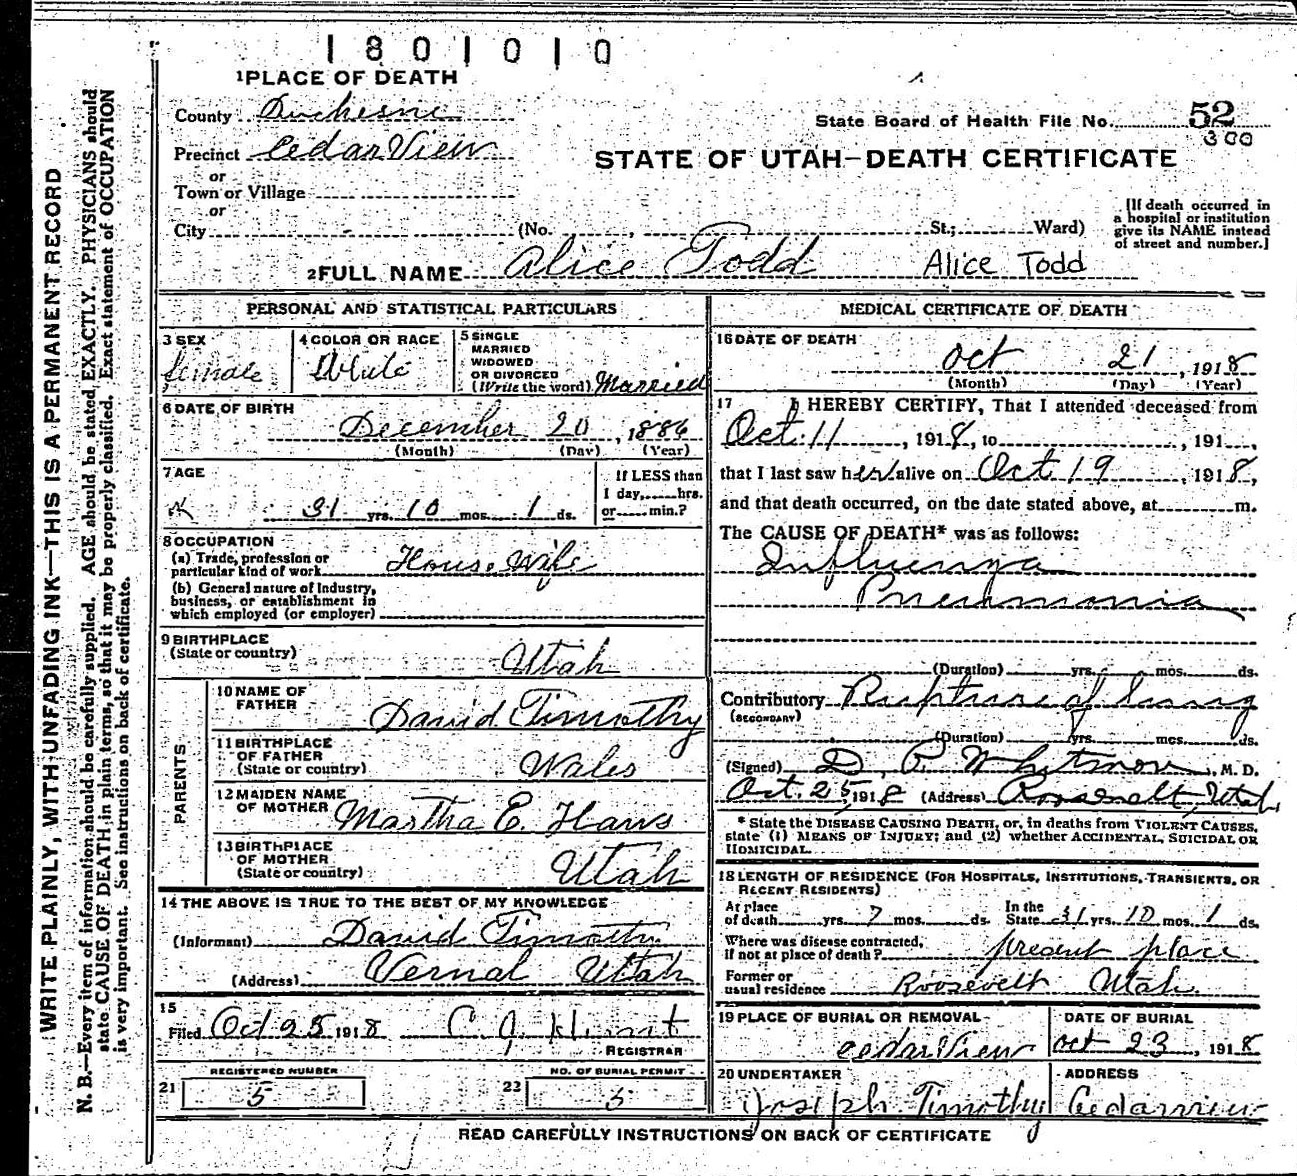 1801010
1 PLACE OF DEATH
County Duchesne
State Board of Health File No. 52
300
Precinct Cedar View
STATE OF UTAH—DEATH CERTIFICATE
or
Town or Village
or
City (No. , St.; Ward)
[If death occurred in
a hospital or institution
give its NAME instead
of street and number.]
2 FULL NAME Alice Todd Alice Todd
PERSONAL AND STATISTICAL PARTICULARS
3 SEX
female
4 COLOR OR RACE
White
5 SINGLE
MARRIED
WIDOWED
OR DIVORCED
(Write the word) Married
6 DATE OF BIRTH
December 20, 1886
(Month) (Day) (Year)
7 AGE
31 yrs. 10 mos. 1 ds.
If LESS than
1 day, hrs.
or min.?
8 OCCUPATION
(a) Trade, profession or
particular kind of work House Wife
(b) General nature of Industry,
business, or establishment in
which employed (or employer)
9 BIRTHPLACE
(State or country)
Utah
PARENTS
10 NAME OF
FATHER
David Timothy
11 BIRTHPLACE
OF FATHER
(State or country)
Wales
12 MAIDEN NAME
OF MOTHER
Martha E. Haws
13 BIRTHPLACE
OF MOTHER
(State or country)
Utah
14 THE ABOVE IS TRUE TO THE BEST OF MY KNOWLEDGE
(Informant) David Timothy
(Address) Vernal Utah
15
Filed Oct 25 1918 C. J.
REGISTRAR
REGISTERED NUMBER
21 5
NO. OF BURIAL PERMIT
22 5
MEDICAL CERTIFICATE OF DEATH
16 DATE OF DEATH
Oct 21, 1918
(Month) (Day) (Year)
17 I HEREBY CERTIFY, That I attended deceased from
Oct. 11, 1918, to , 191 ,
that I last saw her alive on Oct 19, 1918,
and that death occurred, on the date stated above, at m.
The CAUSE OF DEATH* was as follows:
Influenza
Pneumonia
(Duration) yrs. mos. ds.
Contributory Rupture of lung
(SECONDARY)
(Duration) yrs. mos. ds.
(Signed) D. P. Whitmore, M. D.
Oct. 25, 1918 (Address) Roosevelt, Utah
* State the DISEASE CAUSING DEATH, or, in deaths from VIOLENT CAUSES,
state (1) MEANS OF INJURY; and (2) whether ACCIDENTAL, SUICIDAL OR
HOMICIDAL.
18 LENGTH OF RESIDENCE (FOR HOSPITALS, INSTITUTIONS, TRANSIENTS, OR
RECENT RESIDENTS)
At place
of death yrs. 7 mos. ds.
In the
State 31 yrs. 10 mos. 1 ds.
Where was disease contracted,
if not at place of death? present place
Former or
usual residence Roosevelt Utah
19 PLACE OF BURIAL OR REMOVAL
Cedarview
DATE OF BURIAL
Oct 23, 1918
20 UNDERTAKER
Joseph Timothy
ADDRESS
Cedarview
READ CAREFULLY INSTRUCTIONS ON BACK OF CERTIFICATE
WRITE PLAINLY, WITH UNFADING INK—THIS IS A PERMANENT RECORD
N. B.—Every item of information should be carefully supplied. AGE should be stated EXACTLY. PHYSICIANS should
state CAUSE OF DEATH in plain terms, so that it may be properly classified. Exact statement of OCCUPATION
is very important. See instructions on back of certificate.